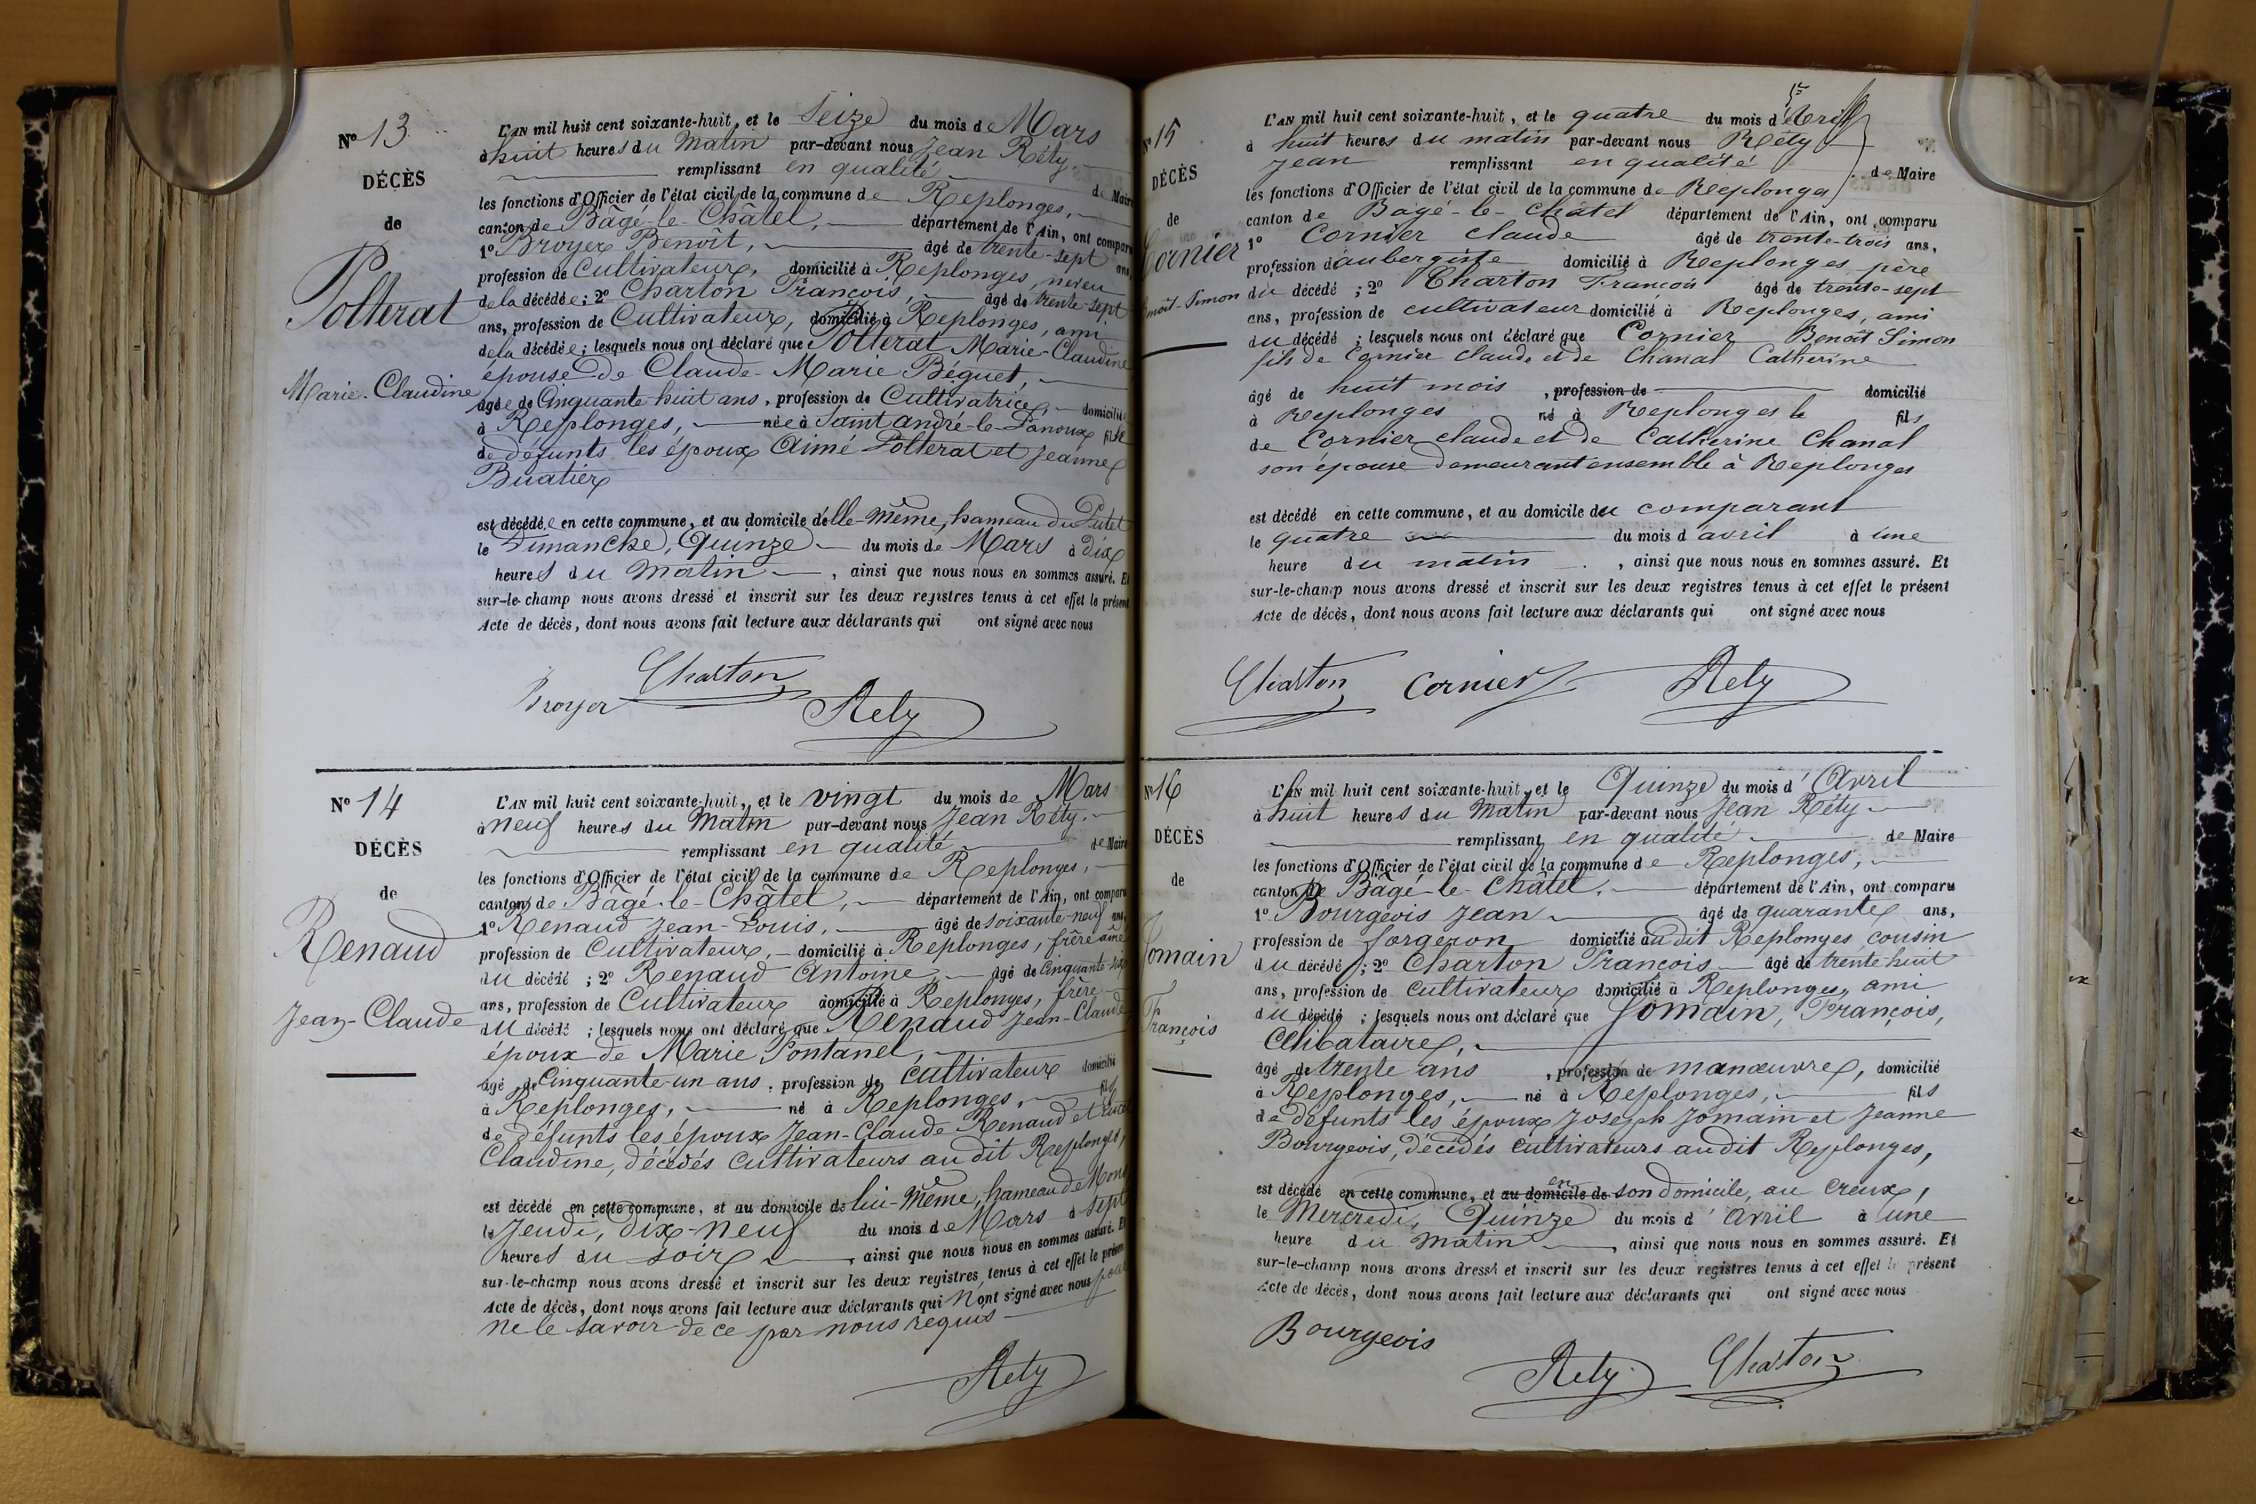 Nº 13
DÉCÈS
de
Polterat
Marie-Claudine
L'AN mil huit cent soixante-huit, et le Seize du mois de Mars
à huit heures du Matin par-devant nous Jean Réty,
remplissant en qualité de Maire
les fonctions d'Officier de l'état civil de la commune de Replonges,
canton de Bâgé-le-Châtel, département de l'Ain, ont comparu
1º Broyer Benoît, âgé de trente-sept ans
profession de Cultivateur, domicilié à Replonges, neveu
de la décédée; 2º Charton François, âgé de trente-sept
ans, profession de Cultivateur, domicilié à Replonges, ami
de la décédée; lesquels nous ont déclaré que Polterat Marie-Claudine
épouse de Claude-Marie Béguet,
âgée de Cinquante-huit ans, profession de Cultivatrice, domicilié
à Replonges, née à Saint andré-le-Panoux fille
de défunts les époux Aimé Polterat et Jeanne
Buatier
est décédée en cette commune, et au domicile d'elle-même, hameau du
le Dimanche, Quinze du mois de Mars à dix
heures du Matin, ainsi que nous nous en sommes assuré. Et
sur-le-champ nous avons dressé et inscrit sur les deux registres tenus à cet effet le présent
Acte de décès, dont nous avons fait lecture aux déclarants qui ont signé avec nous
Broyer Charton Rety
Nº 14
DÉCÈS
de
Renaud
Jean-Claude
L'AN mil huit cent soixante-huit, et le vingt du mois de Mars
à neuf heures du Matin par-devant nous Jean Réty,
remplissant en qualité de Maire
les fonctions d'Officier de l'état civil de la commune de Replonges,
canton de Bâgé-le-Châtel, département de l'Ain, ont comparu
1º Renaud Jean-Louis, âgé de soixante-neuf ans,
profession de Cultivateur, domicilié à Replonges, frère aîné
du décédé; 2º Renaud Antoine, âgé de Cinquante-
ans, profession de Cultivateur domicilié à Replonges, frère
du décédé; lesquels nous ont déclaré que Renaud Jean-Claude
époux de Marie Pontanel,
âgé de Cinquante-un ans, profession de cultivateur domicilié
à Replonges, né à Replonges, fils
de défunts les époux Jean-Claude Renaud et
Claudine, décédés cultivateurs au dit Replonges,
est décédé en cette commune, et au domicile de lui-même, hameau de
le Jeudi, dix-neuf du mois de Mars à Sept
heures du soir, ainsi que nous nous en sommes assuré. Et
sur-le-champ nous avons dressé et inscrit sur les deux registres tenus à cet effet le présent
Acte de décès, dont nous avons fait lecture aux déclarants qui n'ont signé avec nous pour
ne le savoir de ce par nous requis
Rety
Nº 15
DÉCÈS
de
Cornier
Benoit-Simon
L'AN mil huit cent soixante-huit, et le quatre du mois d'Avril
à huit heures du matin par-devant nous Réty
Jean remplissant en qualité de Maire
les fonctions d'Officier de l'état civil de la commune de Replonges
canton de Bagé-le-châtel département de l'Ain, ont comparu
1º Cornier claude âgé de trente-trois ans,
profession d'aubergiste domicilié à Replonges père
du décédé; 2º Charton François âgé de trente-sept
ans, profession de cultivateur domicilié à Replonges, ami
du décédé; lesquels nous ont déclaré que Cornier Benoît Simon
fils de Cornier claude et de Chanal Catherine
âgé de huit mois, profession de domicilié
à Replonges né à Replonges le fils
de Cornier claude et de Catherine Chanal
son épouse demeurant ensemble à Replonges
est décédé en cette commune, et au domicile du comparant
le quatre du mois d'avril à une
heure du matin, ainsi que nous nous en sommes assuré. Et
sur-le-champ nous avons dressé et inscrit sur les deux registres tenus à cet effet le présent
Acte de décès, dont nous avons fait lecture aux déclarants qui ont signé avec nous
Charton Cornier Rety
Nº 16
DÉCÈS
de
Jomain
François
L'AN mil huit cent soixante-huit, et le Quinze du mois d'Avril
à huit heures du Matin par-devant nous Jean Réty
remplissant en qualité de Maire
les fonctions d'Officier de l'état civil de la commune de Replonges,
canton de Bâgé-le-Châtel, département de l'Ain, ont comparu
1º Bourgeois Jean âgé de quarante ans,
profession de forgeron domicilié au dit Replonges cousin
du décédé; 2º Charton François âgé de trente-huit
ans, profession de cultivateur domicilié à Replonges, ami
du décédé; lesquels nous ont déclaré que Jomain, François,
Célibataire,
âgé de trente ans, profession de manœuvre, domicilié
à Replonges, né à Replonges, fils
de défunts les époux Joseph Jomain et Jeanne
Bourgeois, décédés cultivateurs au dit Replonges,
est décédé en cette commune, et au domicile de en son domicile, au Creux,
le Mercredi, Quinze du mois d'avril à une
heure du Matin, ainsi que nous nous en sommes assuré. Et
sur-le-champ nous avons dressé et inscrit sur les deux registres tenus à cet effet le présent
Acte de décès, dont nous avons fait lecture aux déclarants qui ont signé avec nous
Bourgeois Rety Charton